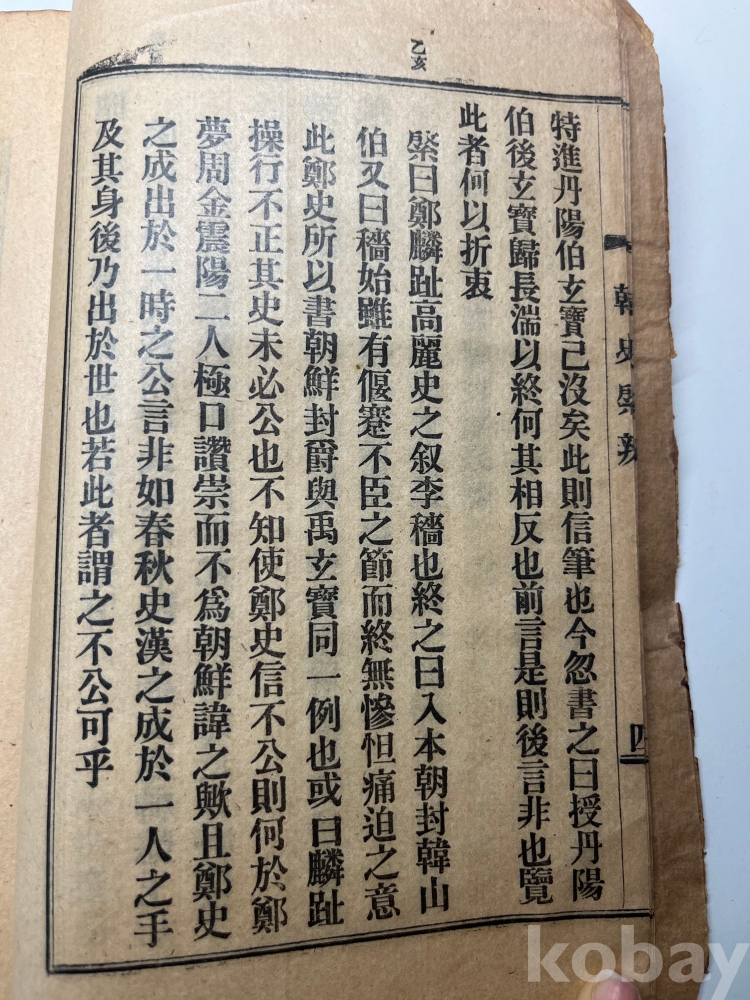 韓史綮辨
四
特進丹陽伯玄寶已沒矣此則信筆也今忽書之曰授丹陽
伯後玄寶歸長湍以終何其相反也前言是則後言非也覽
此者何以折衷
綮曰鄭麟趾高麗史之叙李穡也終之曰入本朝封韓山
伯又曰穡始雖有偃蹇不臣之節而終無慘怛痛迫之意
此鄭史所以書朝鮮封爵與禹玄寶同一例也或曰麟趾
操行不正其史未必公也不知使鄭史信不公則何於鄭
夢周金震陽二人極口讚崇而不爲朝鮮諱之歟且鄭史
之成出於一時之公言非如春秋史漢之成於一人之手
及其身後乃出於世也若此者謂之不公可乎
乙亥
kobay